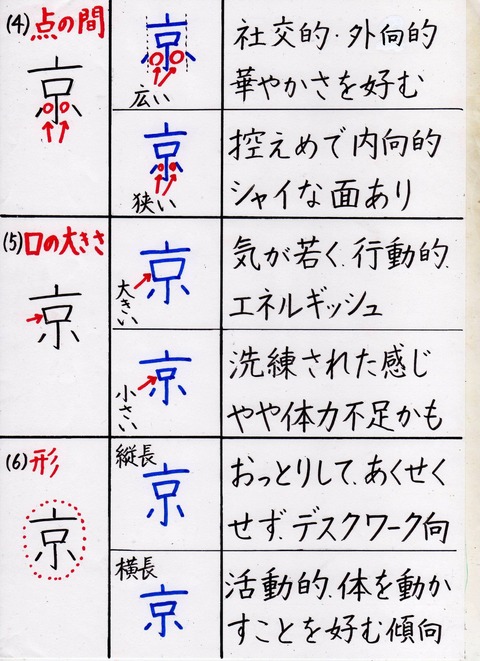 (4)点の間
京
京
広い
社交的・外向的
華やかさを好む
京
狭い
控えめで内向的
シャイな面あり
(5)口の大きさ
京
京
大きい
気が若く、行動的、
エネルギッシュ
京
小さい
洗練された感じ
やや体力不足かも
(6)形
京
縦長
京
おっとりして、あくせく
せず、デスクワーク向
横長
京
活動的、体を動か
すことを好む傾向